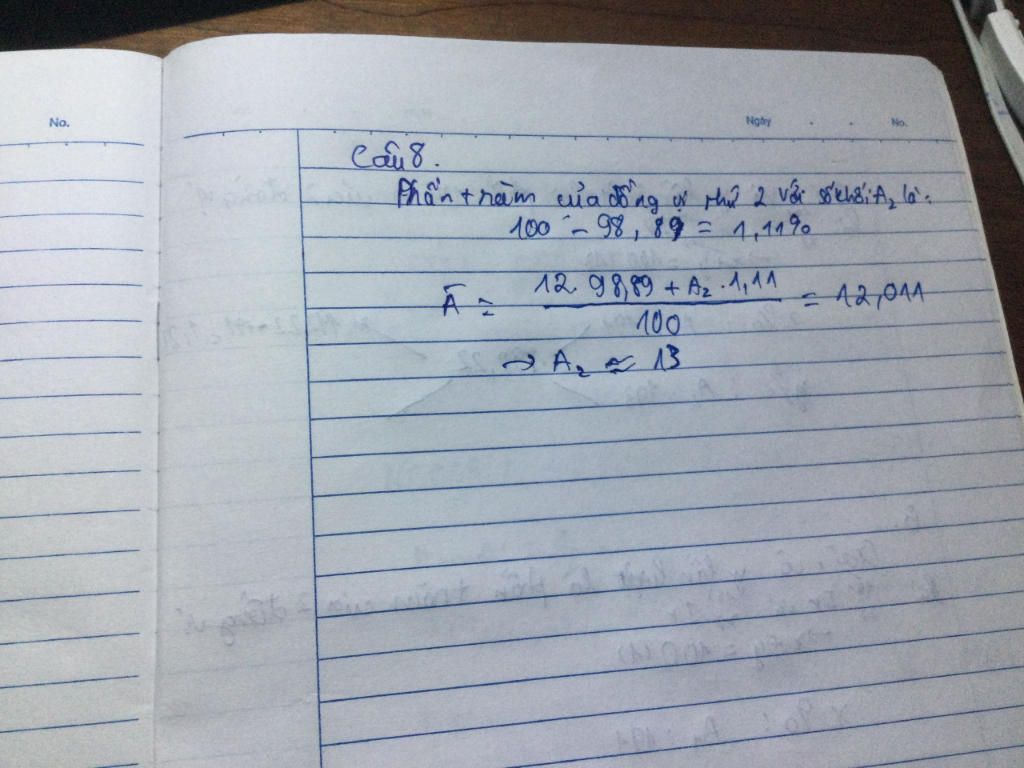 No.
Ngày . . No.
Câu 8.
Phần trăm của đồng vị thứ 2 với số khối A₂ là:
100 - 98,89 = 1,11%
Ā = (12. 98,89 + A₂ . 1,11) / 100 = 12,011
→ A₂ ≈ 13